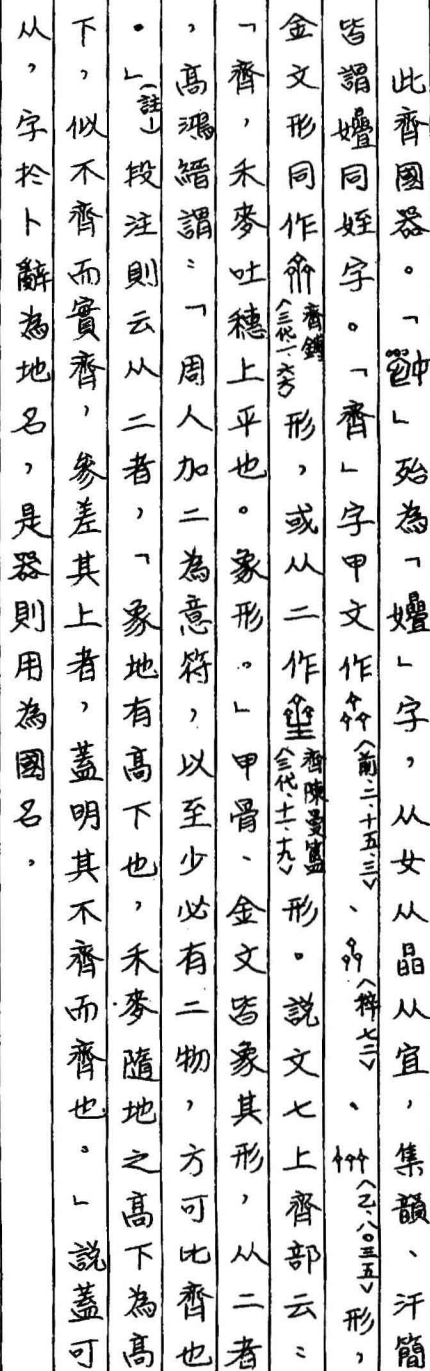 此齊國器。「」殆為「㜼」字，从女从晶从宜，集韻、汗簡
皆謂㜼同姪字。「齊」字甲文作〈前．二．十五．三〉、〈粹七二〉、〈乙．八〇三五〉形，
金文形同作齊鎛〈三代一．六六〉形，或从二作齊陳曼簠〈三代．十．十九〉形。說文七上齊部云：
「齊，禾麥吐穗上平也。象形。」甲骨、金文皆象其形，从二者
，高鴻縉謂：「周人加二為意符，以至少必有二物，方可比齊也
。」（註1）段注則云从二者，「象地有高下也，禾麥隨地之高下為高
下，似不齊而實齊，參差其上者，蓋明其不齊而齊也。」說蓋可
从，字於卜辭為地名，是器則用為國名，